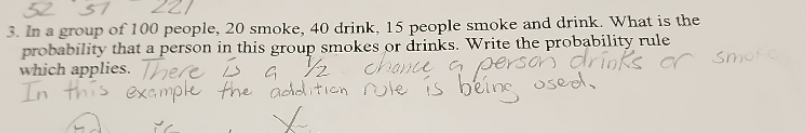 52 57 221
3. In a group of 100 people, 20 smoke, 40 drink, 15 people smoke and drink. What is the
probability that a person in this group smokes or drinks. Write the probability rule
which applies. There is a 1/2 chance a person drinks or smoke
In this example the addition rule is being used.